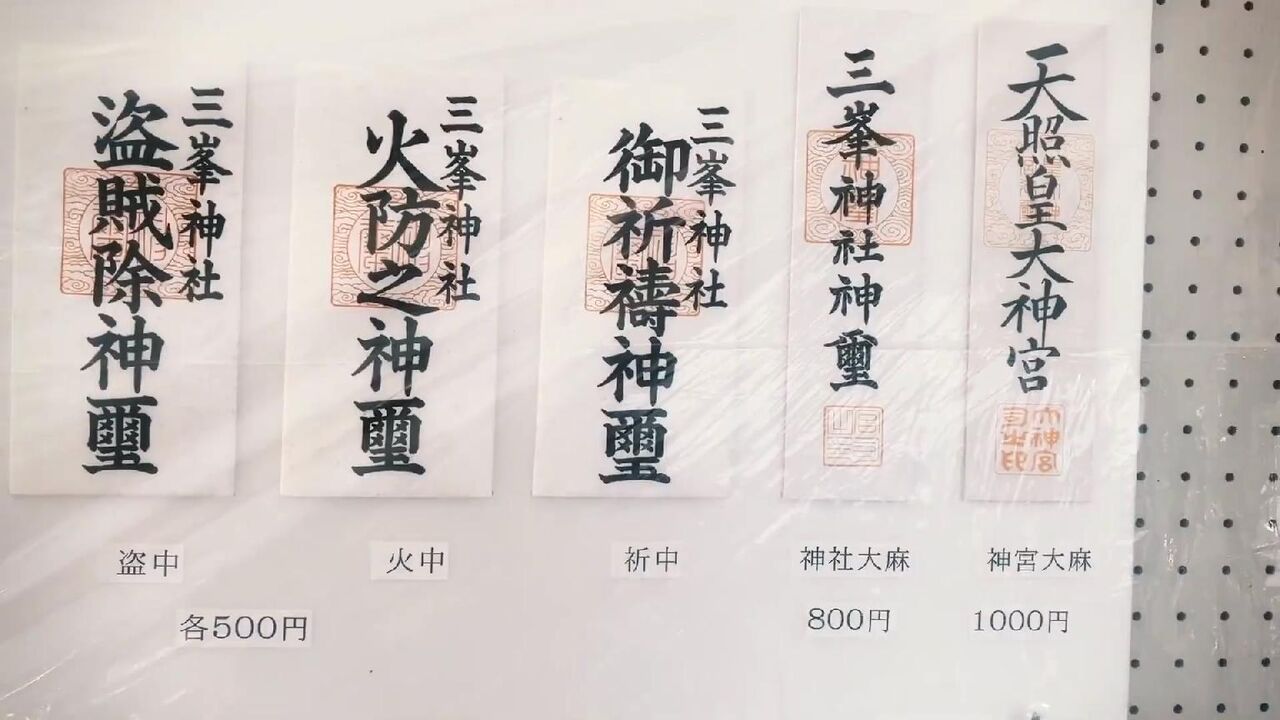 三峯神社
盗賊除神璽
三峯神社
火防之神璽
三峯神社
御祈禱神璽
三峯神社神璽
天照皇大神宮
大神宮
司之印
盗中
火中
祈中
神社大麻
神宮大麻
各500円
800円
1000円